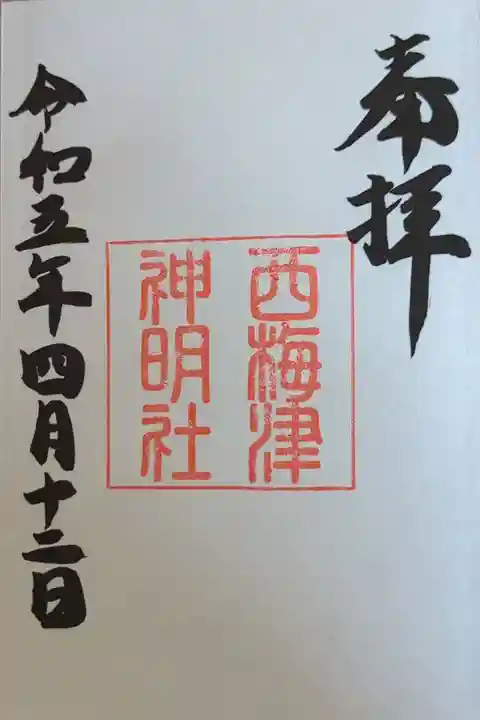 奉拝
西梅津
神明社
令和五年四月十二日